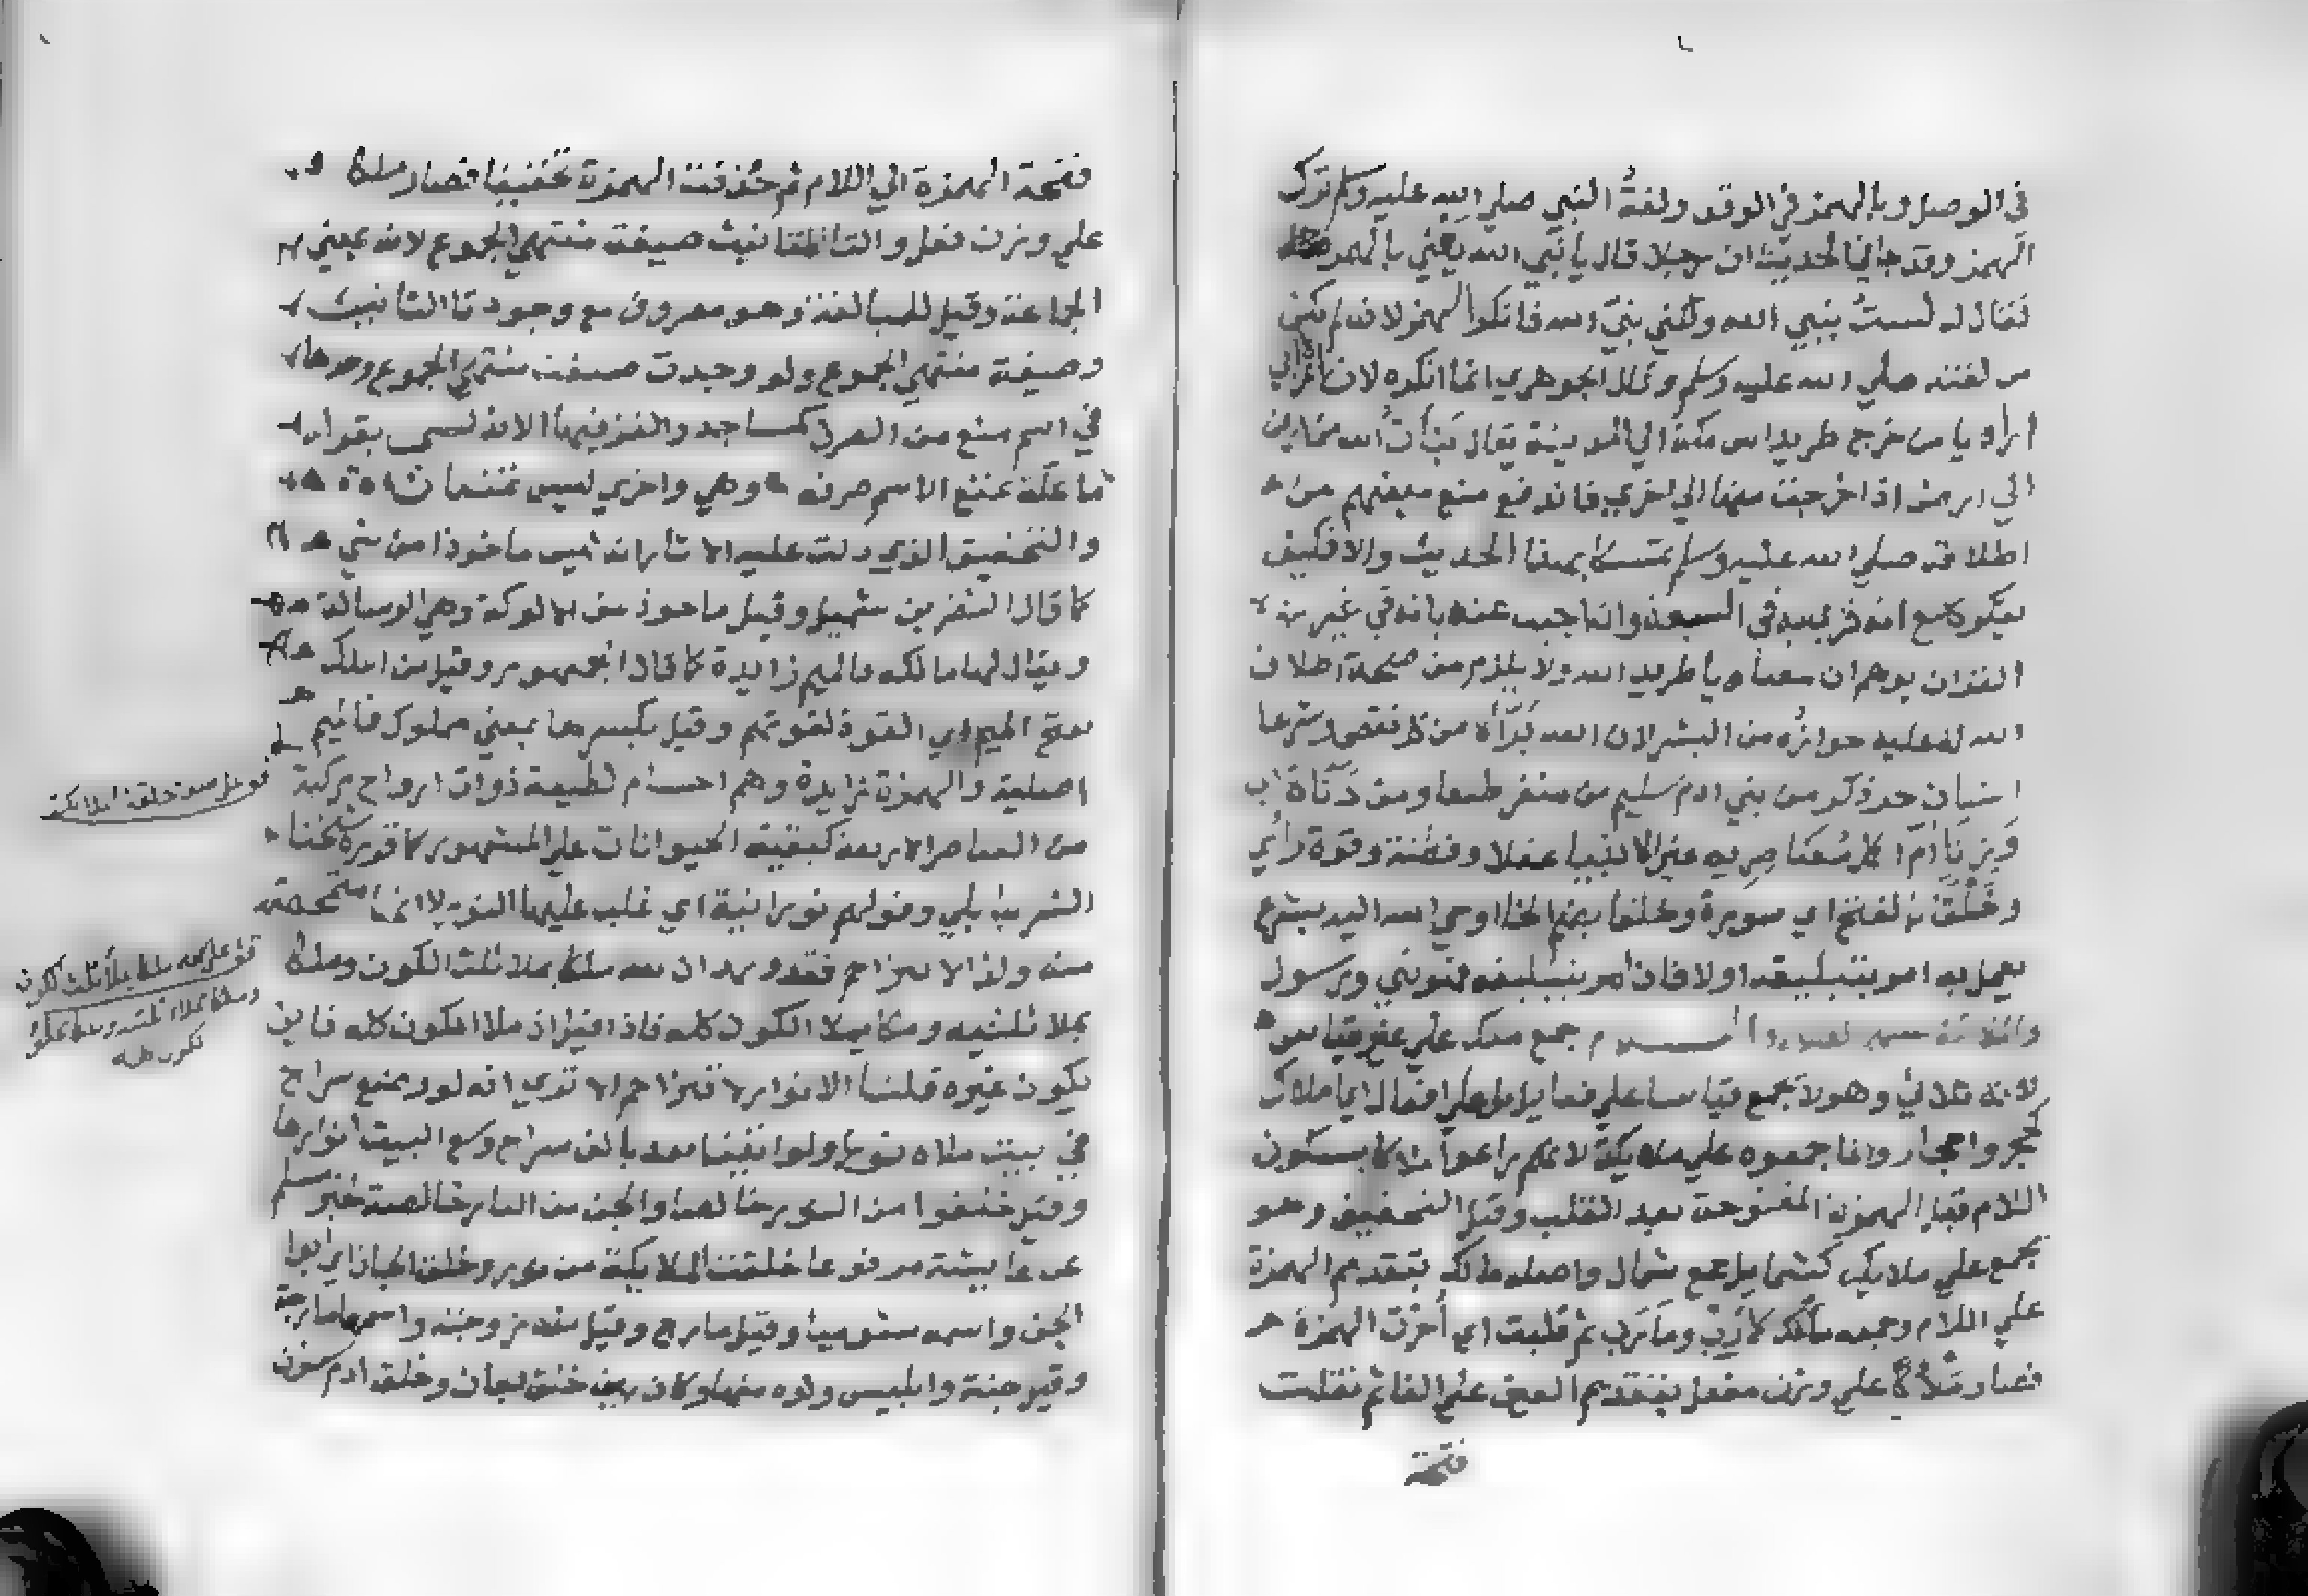 في الوصل وبالهمز في الوقف ولغة النبي صلي الله عليه وسلم ترك
الهمز وقد جا في الحديث ان رجلا قال يا نبي الله يعني بالهمز
فقال له لست بنبي الله ولكني نبيّ الله فانكر الهمز لانه لم يكن
من لغته صلي الله عليه وسلم وقال الجوهري انما انكره لان الاعرابي
اراد يا من خرج طريدا من مكة الي المدينة يقال نبأت من ارض
الي ارض اذا خرجت منها الي اخري فاندفع منع بعضهم من
اطلاقه صلي الله عليه وسلم تمسكا بهذا الحديث والا فكيف
ينكر مع انه قري به في السبعة وانما اجيب عنه بانه في غير
القران يوهم ان معناه يا طريد الله ولا يلزم من صحة اطلاق
الله له عليه جوازه من البشر لان الله برأه من كل نقص وشرعا
انسان حر ذكر من بني ادم سليم من منفر طبعا ومن دناة اب
وَزِنَا أمّ اكمل معاصريه غير الانبيا عقلا وفطنة وقوة راي
وخَلْقا بالفتح اي صورة وخلقا بضم الخا اوحي الله اليه بشرع
يعمل به امر بتبليغه اولا فان امر بتبليغه فنبي ورسول
والسلام جمع ملك علي غير قياس
لانه ثلاثي وهو لا يجمع قياسا علي فعايل بل علي افعال اي املاك
كحجر واحجار وانما جمعوه علي ملايكة لانهم راعوا ملأكا بسكون
اللام قبل الهمزة المفتوحة بعد القلب وقبل التخفيف وهو
يجمع علي ملايك كشمايل جمع شمال واصله مالك بتقديم الهمزة
علي اللام وجمعه مآلك كمأرب ومآرب ثم قلبت اي أخرت الهمزة
فصار ملأكا علي وزن معفل بتقديم العين علي الفا ثم نقلت
فتحة
فتحة الهمزة الي اللام ثم حذفت الهمزة تخفيفا فصار ملكا
علي وزن فعل والتا لتانيث صيغة منتهي الجموع لانه بمعني
الجماعة وقيل للمبالغة وهو مصروف مع وجود تا التانيث
وصيغة منتهي الجموع ولو وجدت صيغة منتهي الجموع وحدها
في اسم منع من الصرف كمساجد
ما علة تمنع الاسم صرفه وهي واخري ليس تمنعان
والتحقيق الذي دلت عليه الاثار انه ليس ماخوذا من شي
كما قال النضر بن شميل وقيل ماخوذ من الالوكة وهي الرسالة
ويقال لها مالكه فالميم زايدة كما قال الجمهور وقيل من الملك
بفتح الميم اي القوة لقوتهم وقيل بكسرها بمعني مملوك فالميم
اصلية والهمزة زايدة وهم اجسام لطيفة ذوات ارواح مركبة
من العناصر الاربعة كبقية الحيوانات علي المشهور كما قرره شيخنا
الشربابلي وقولهم نورانية اي غلب عليها النور لا انها متمحضة
منه ولذا لا تتزاحم فقد ورد ان لله ملكا يملا ثلث الكون وملكا
يملا ثلثيه وملكا يملا الكون كله فاذا قيل اذا ملا الكون كله فاين
يكون غيره قلنا الانوار لا تتزاحم الا تري انه لو وضع سراج
في بيت ملاه نورا ولو اتينا بعده بالف سراج وسع البيت انوارها
وقيل خلقوا من النور خالصا والجن من النار خالصة لخبر مسلم
عن عايشة مرفوعا خلقت الملايكة من نور وخلق الجان اي ابوا
الجن واسمه شوميا وقيل مارج وقيل زوجته واسمها مارجة
وقيل جنة وابليس ولده منهما وكان بين خلق الجان وخلق ادم ستون
قف علي صفة خلقة الملايكة
قف علي ان لله ملكا يملأ ثلث الكون
وملكا يملا ثلثيه وملكا يملا
الكون كله